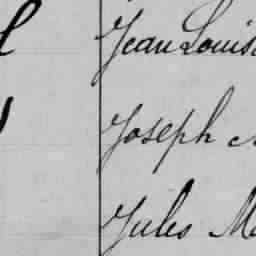 Jean Louis
Joseph
Jules